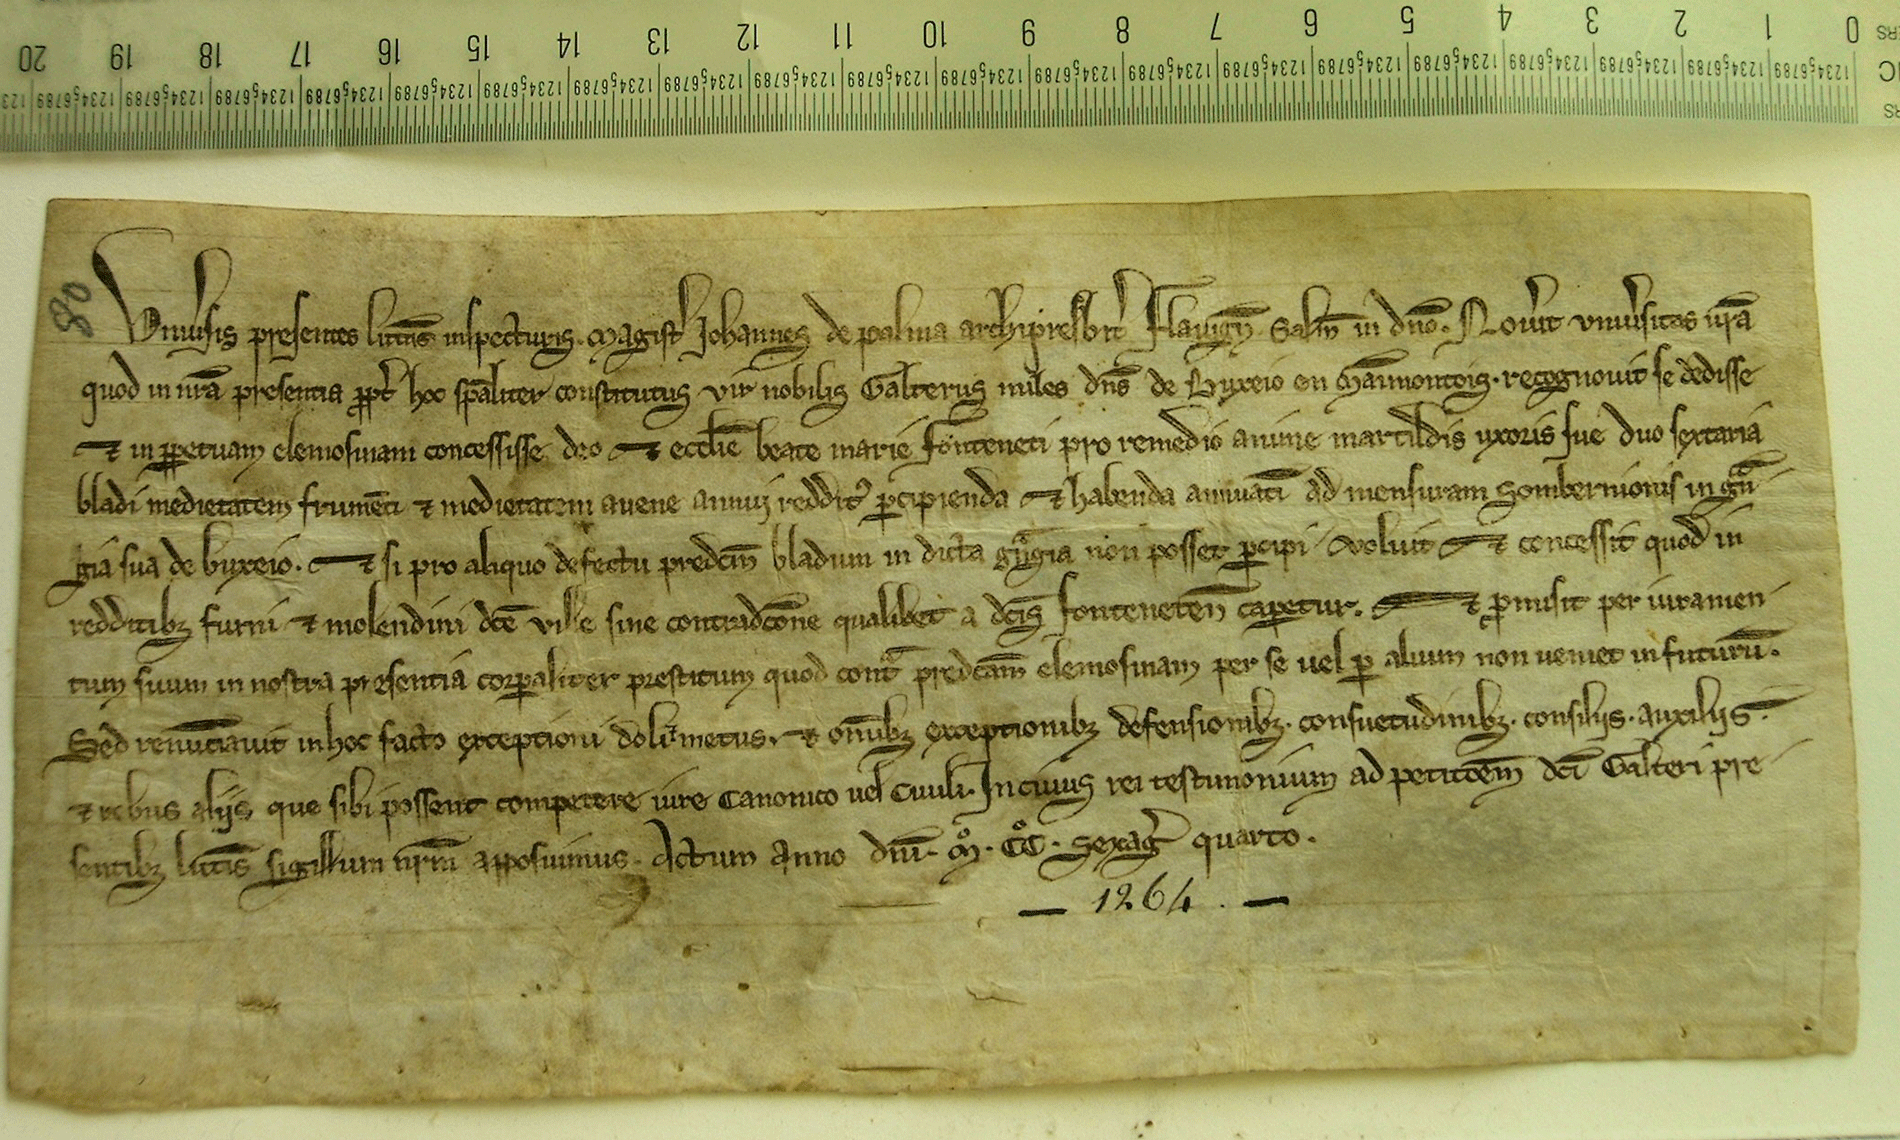 20 19 18 17 16 15 14 13 12 11 10 9 8 7 6 5 4 3 2 1 0
80
Vniu'sis presentes litt'as inspecturis. Magist' Johannes de palma archipresbit' Flauign̄ salt'm in dn̄o. Nou'it vniu'sitas nr̄a
quod in nr̄a presentia ꝓpt' hoc sp̄aliter constitutus vir nobilis Galterus miles dn̄s de Byxeio en recognouit se dedisse
⁊ in ꝑpetuam elemosinam concessisse deo ⁊ eccl̄ie beate marie fonteneti pro remedio anime martildis vxoris sue duo sextaria
bladi medietatem frum̄eti ⁊ medietatem auene annui reddit' ꝑcipienda ⁊ habenda annuati̅ ad mensuram Sombernionis in gn̄-
gia sua de byxeio. ⁊ si pro aliquo defectu predcm̄ bladum in dicta gn̄gia non posset ꝑcipi voluit ⁊ concessit quod in
redditibꝫ furni ⁊ molendini dc̄e ville sine contradc̄one qualibet a dc̄is fonteneten̄ caꝑetur. ⁊ ꝓmisit per iuramen
tum suum in nostra presentia corꝑaliter prestitum quod cont̄ predc̄am elemosinam per se uel ꝑ alium non ueniet in futuru̅.
Sed renu̅tiauit in hoc facto exceptioni doli metus. ⁊ om̄ibꝫ exceptionibꝫ defensionibꝫ. consuetudinibꝫ. consiliis. auxiliis.
⁊ rebus aliis que sibi possent competere iure Canonico uel Ciuili. In cuius rei testimonium ad petitc̄em dc̄i Galteri pre
sentibꝫ litt'is sigillum nr̄m apposuimus. Actum anno dn̄i. M̊. C̊C. Sexag' quarto.
— 1264. —